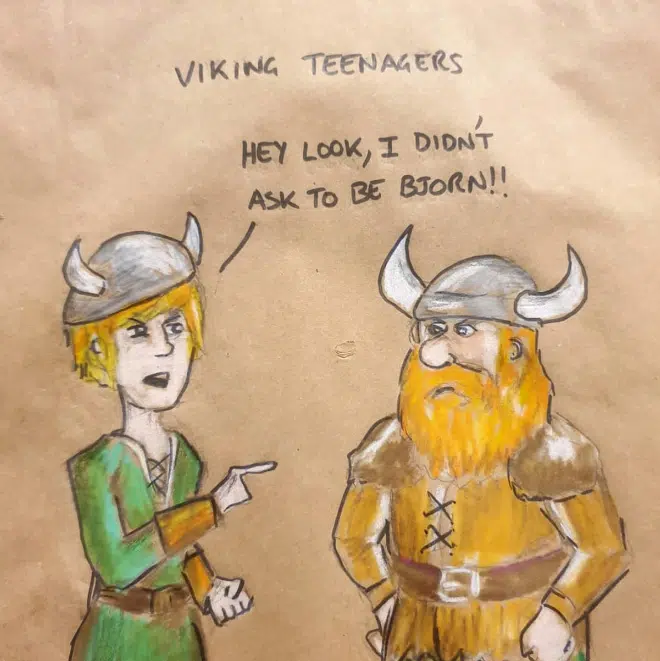 VIKING TEENAGERS
HEY LOOK, I DIDN'T
ASK TO BE BJORN!!